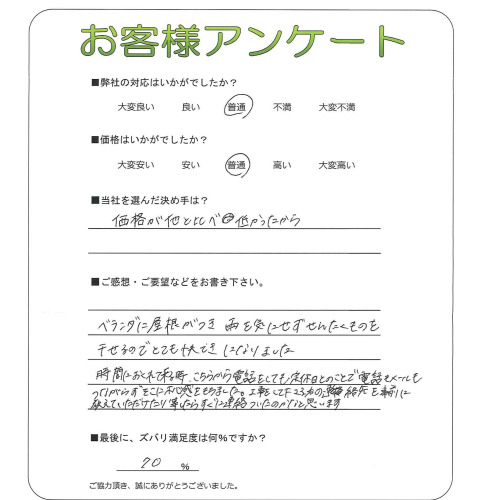 お客様アンケート
■弊社の対応はいかがでしたか？
大変良い 良い 普通 不満 大変不満
■価格はいかがでしたか？
大変安い 安い 普通 高い 大変高い
■当社を選んだ決め手は？
価格が他と比べ低かったから
■ご感想・ご要望などをお書き下さい。
ベランダに屋根がつき 雨を気にせずせんたくものを
干せるのでとても快てきになりました
時間におくれて来る時、こちらから電話をしても定休日とのことで電話もメールも
つながらずそこに不
教えていただけたり したらすぐに連絡ついたのかなと思います
■最後に、ズバリ満足度は何%ですか？
70 %
ご協力頂き、誠にありがとうございました。